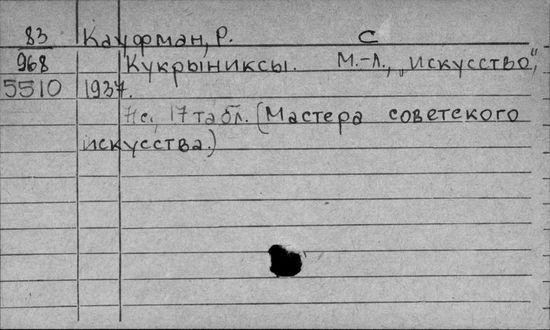 83 Кауфман, Р. С
968 Кукрыниксы. М.-Л., „Искусство,"
5510 1937.
с., 17 табл. (Мастера советского
искусства.)